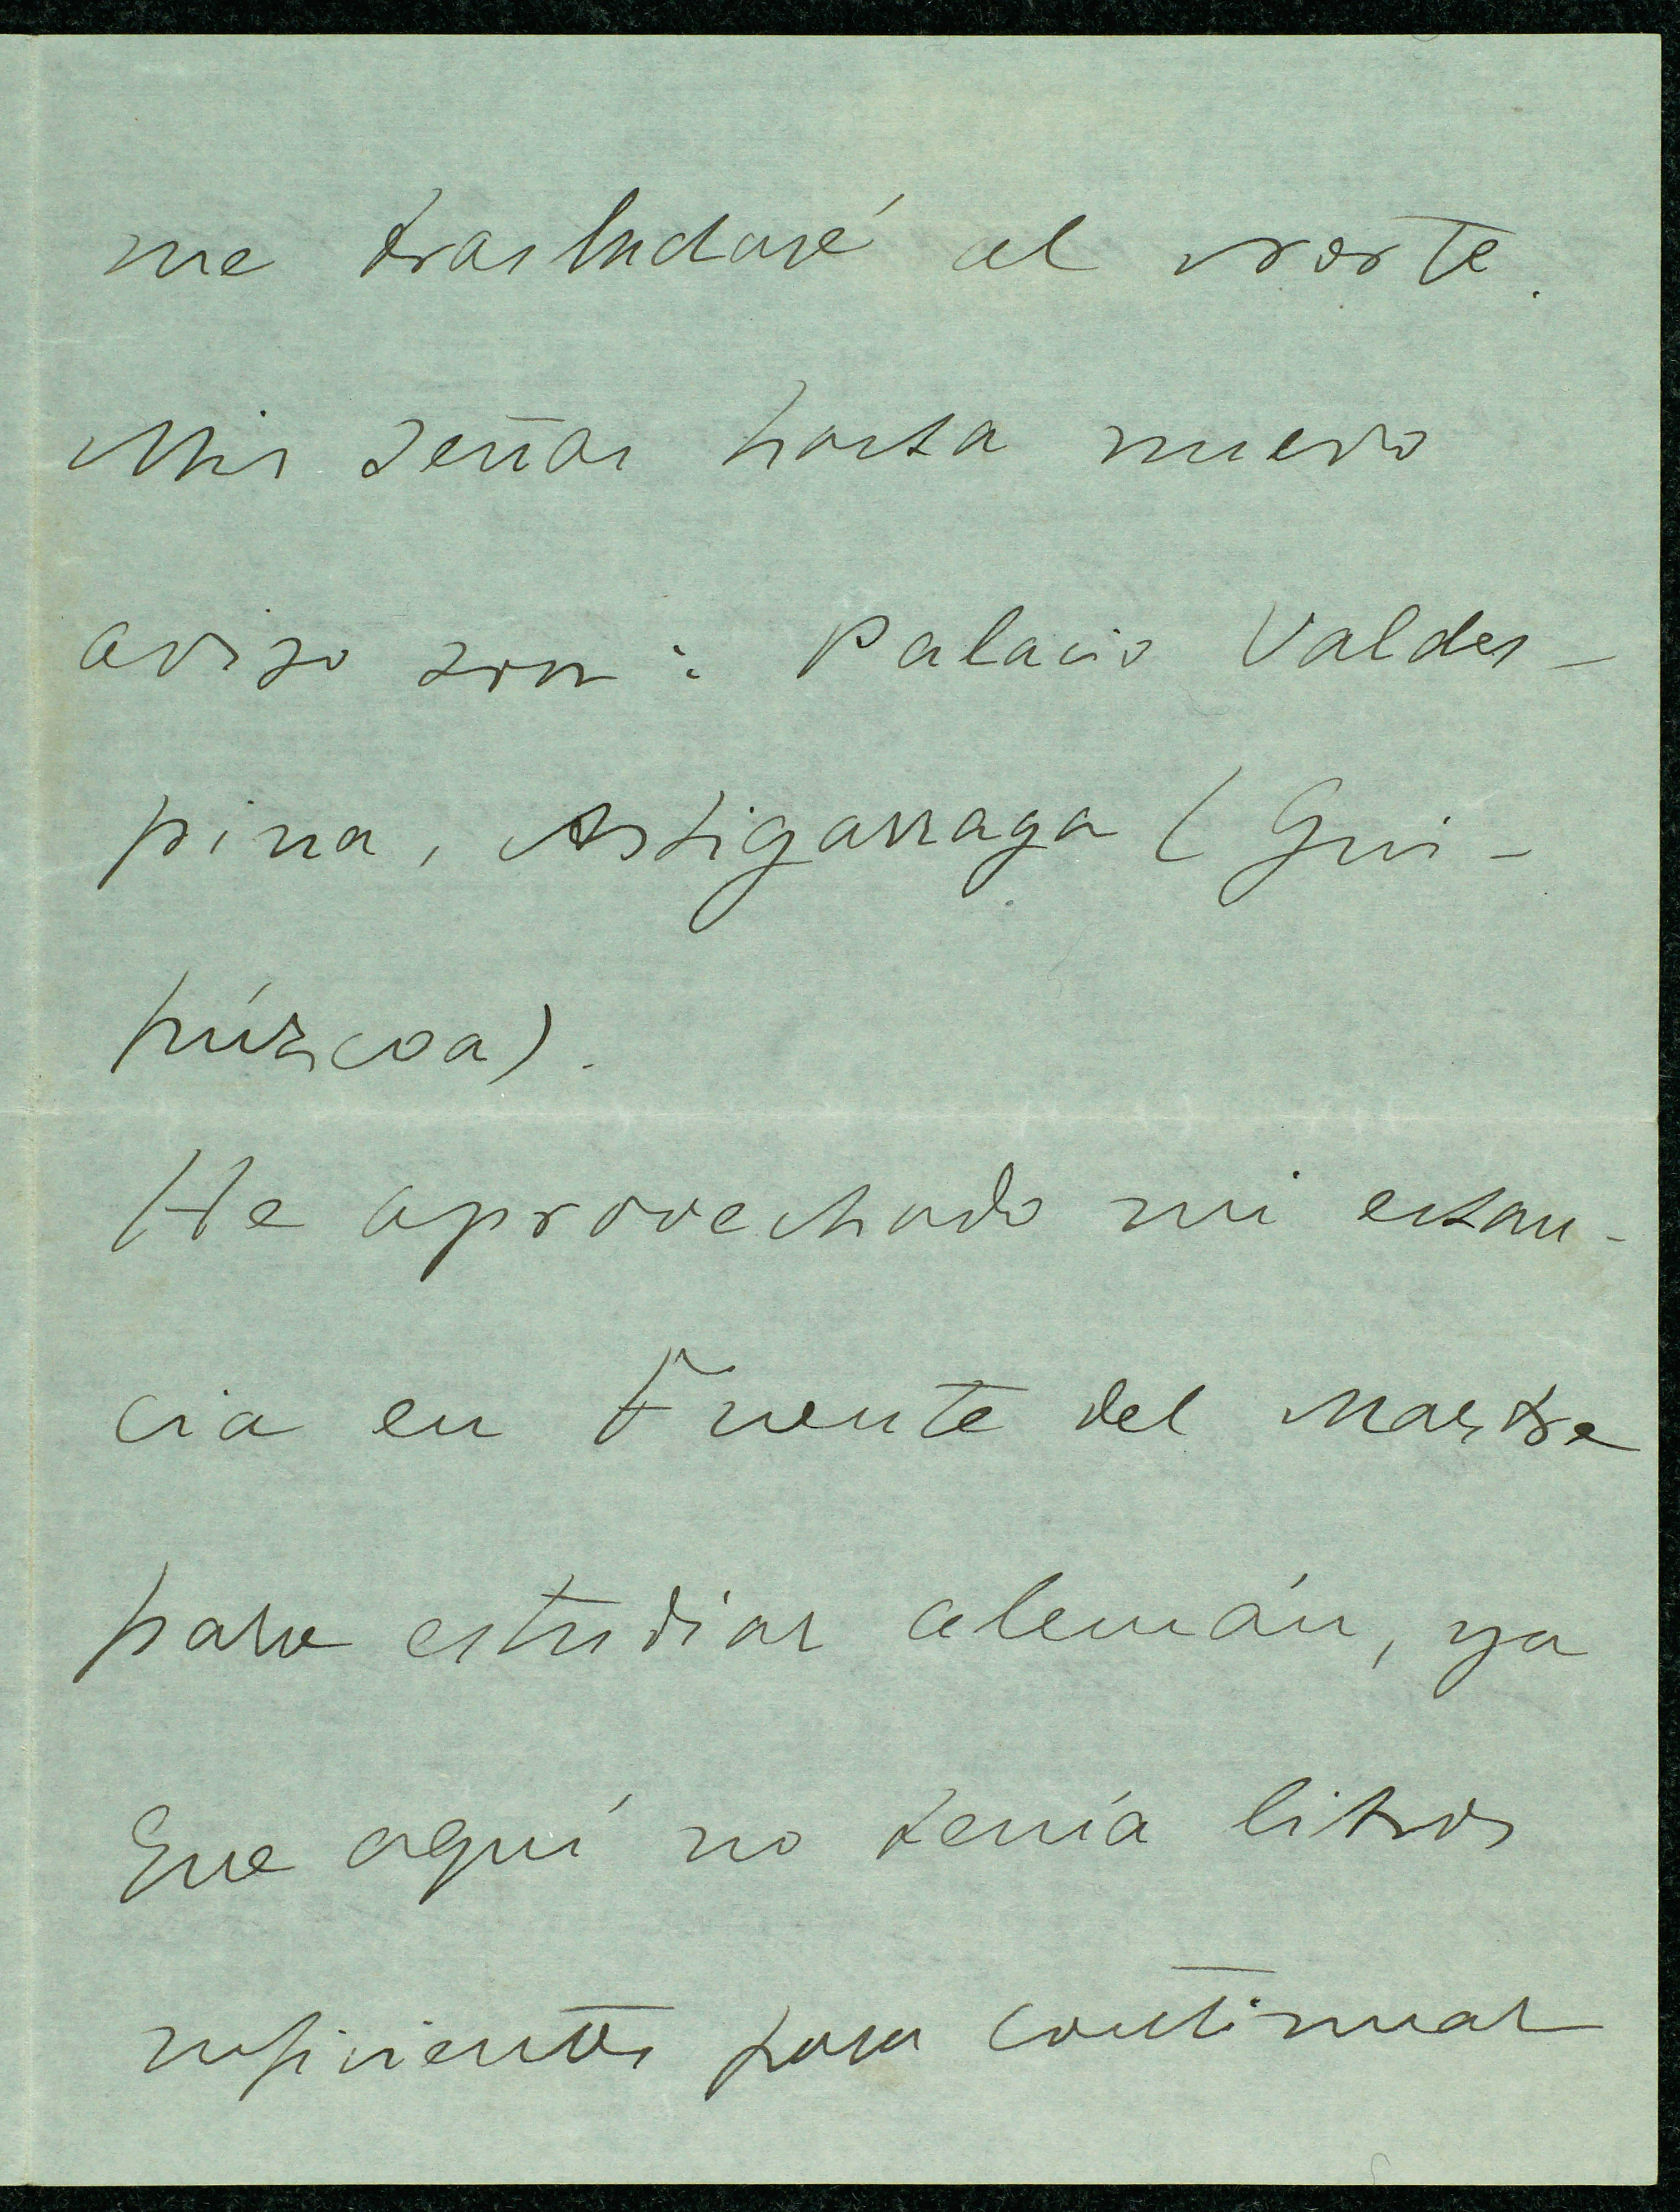 me trasladaré al norte.
Mis señas hasta nuevo
aviso son: Palacio Valdes-
pina, Astigarraga (Gui-
púzcoa).
He aprovechado mi estan-
cia en Fuente del Maestre
para estudiar alemán, ya
que aquí no tenía libros
suficientes para continuar